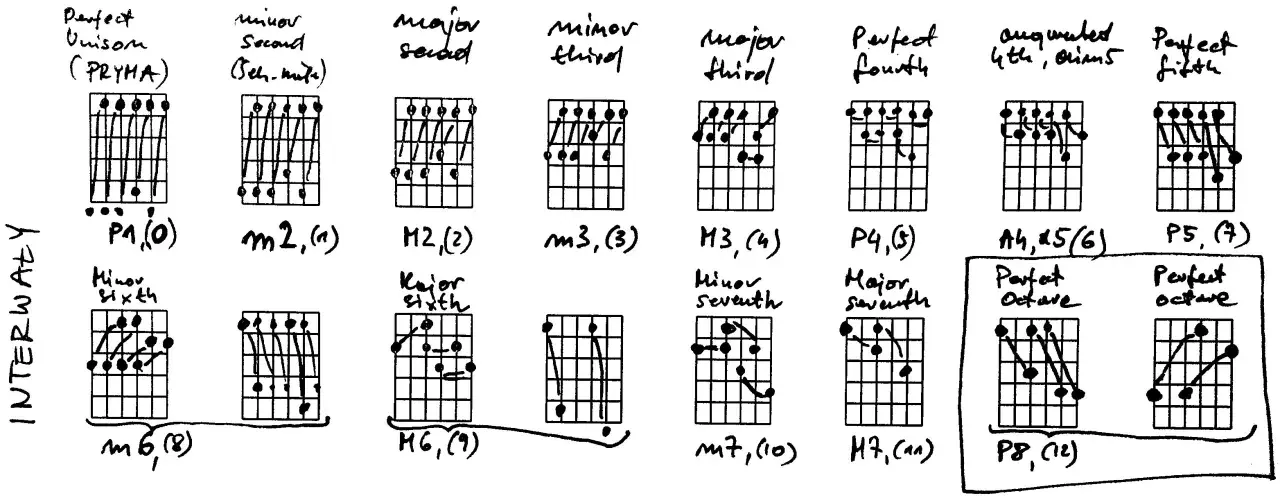 Perfect
Unison
(PRYMA)
minor
second
major
second
minor
third
major
third
Perfect
fourth
augmented
4th, dim5
Perfect
fifth
P1,(0)
m2,(1)
M2,(2)
m3,(3)
M3,(4)
P4,(5)
A4, d5(6)
P5,(7)
INTERWAŁY
Minor
sixth
Major
sixth
Minor
seventh
Major
seventh
Perfect
Octave
Perfect
octave
m6,(8)
M6,(9)
m7,(10)
M7,(11)
P8,(12)